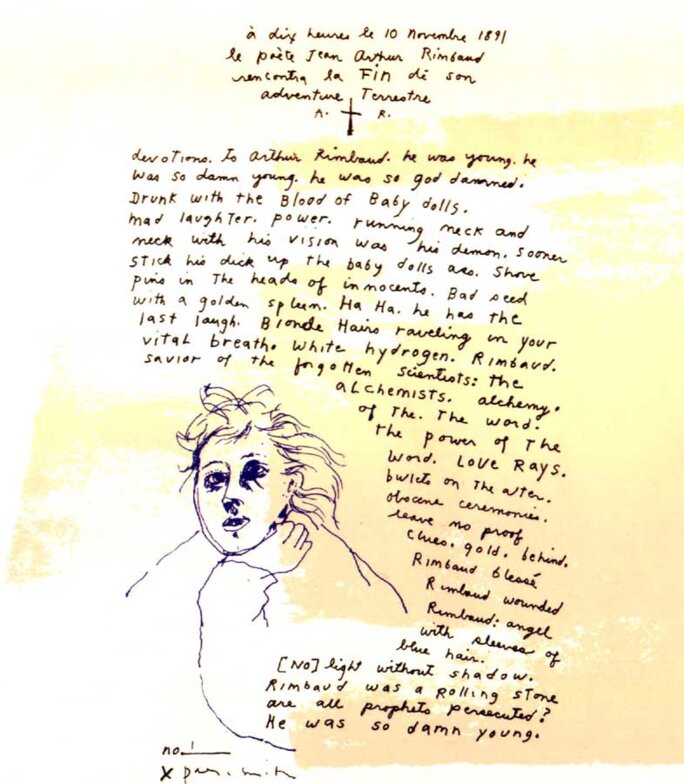 à dix heures le 10 Novembre 1891
le poète Jean Arthur Rimbaud
rencontra la Fin de son
adventure Terrestre
A. R.
devotions. To Arthur Rimbaud. he was young. he
was so damn young. he was so god damned.
Drunk with the Blood of Baby dolls.
mad laughter. power. running neck and
neck with his vision was his demon. Sooner
stick his dick up the baby dolls ass. Shove
pins in The heads of innocents. Bad seed
with a golden spleen. Ha Ha. he has the
last laugh. Blonde Hairs raveling in your
vital breath. White hydrogen. Rimbaud.
savior of the forgotten scientists: the
aLchemists. alchemy.
of The. The word.
the power of The
word. LOVE RAYS.
on The
obscene ceremonies.
leave no proof
Clues. gold. behind.
Rimbaud blessé
Rimbaud wounded
Rimbaud: angel
with sleeves of
blue hair.
[NO] light without shadow.
Rimbaud was a Rolling STone
are all prophets persecuted?
He was so damn young.
no. 1
X